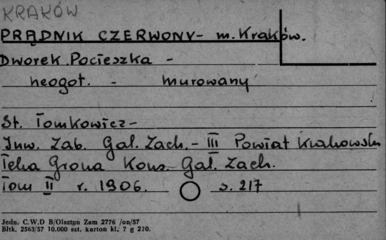 KRAKÓW
PRĄDNIK CZERWONY - m. Kraków.
Dworek Pocieszka -
neogot. - murowany
St. Tomkowicz -
Inw. Zab. Gal. Zach. - III Powiat Krakowski
Teka Grona Kons. Gal. Zach.
Tom II r. 1906. s. 217
Jedn. C.W.D B/Olsztyn Zam 2776 /on/57
Bltk. 2563/57 10.000 szt. karton kl. 7 g 210.